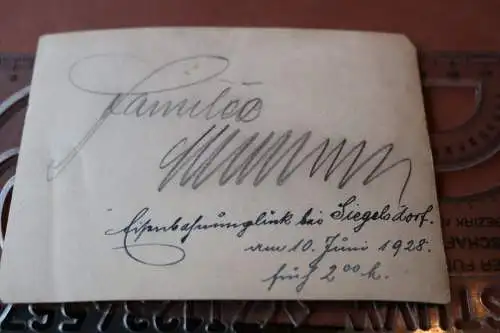 Familie
Eisenbahnunglück bei Siegelsdorf.
am 10. Juni 1928.
früh 2 00 h.